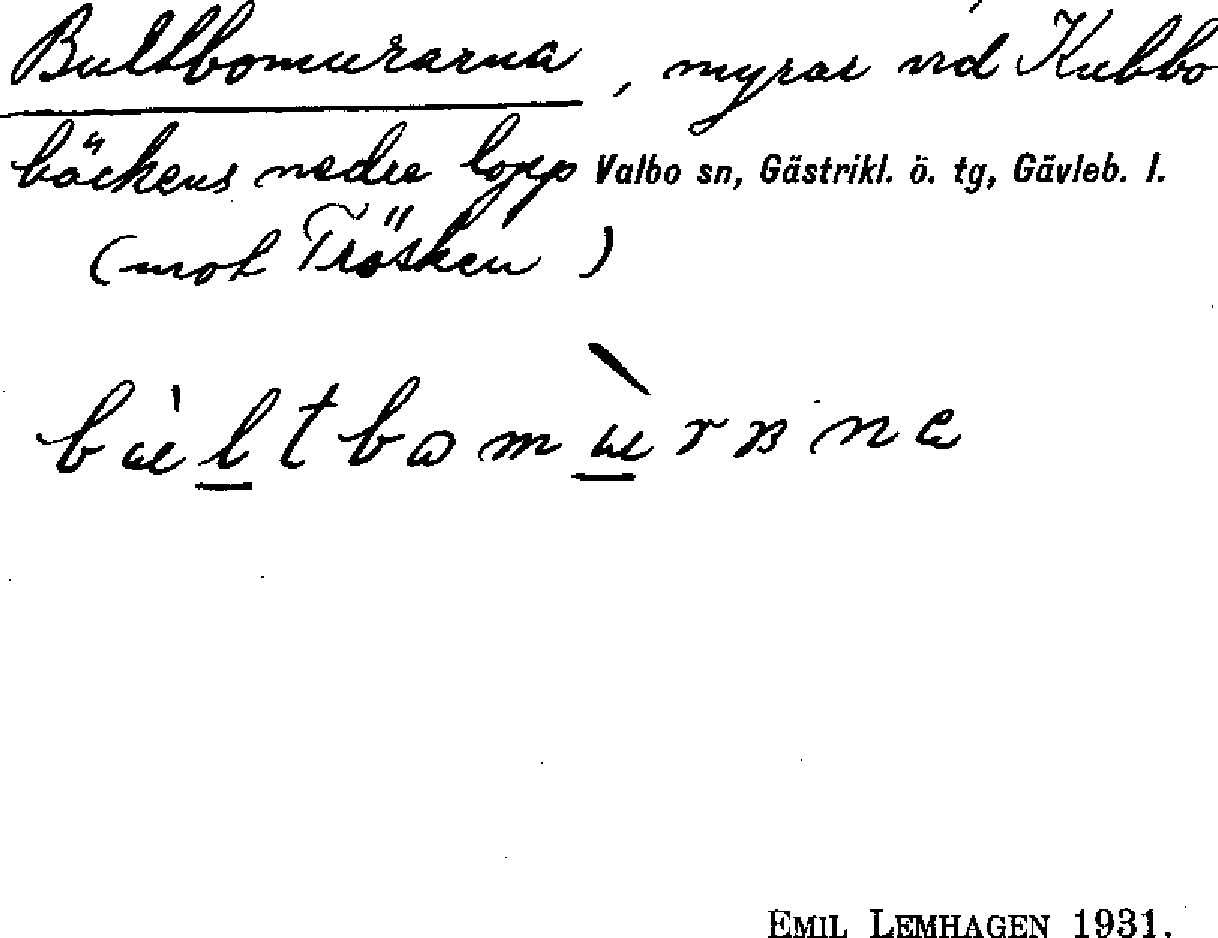 Bultbomurarna, myrar vid Kubbo
bäckens nedre lopp Valbo sn, Gästrikl. ö. tg, Gävleb. l.
(mot Trösken)
EMIL LEMHAGEN 1931.